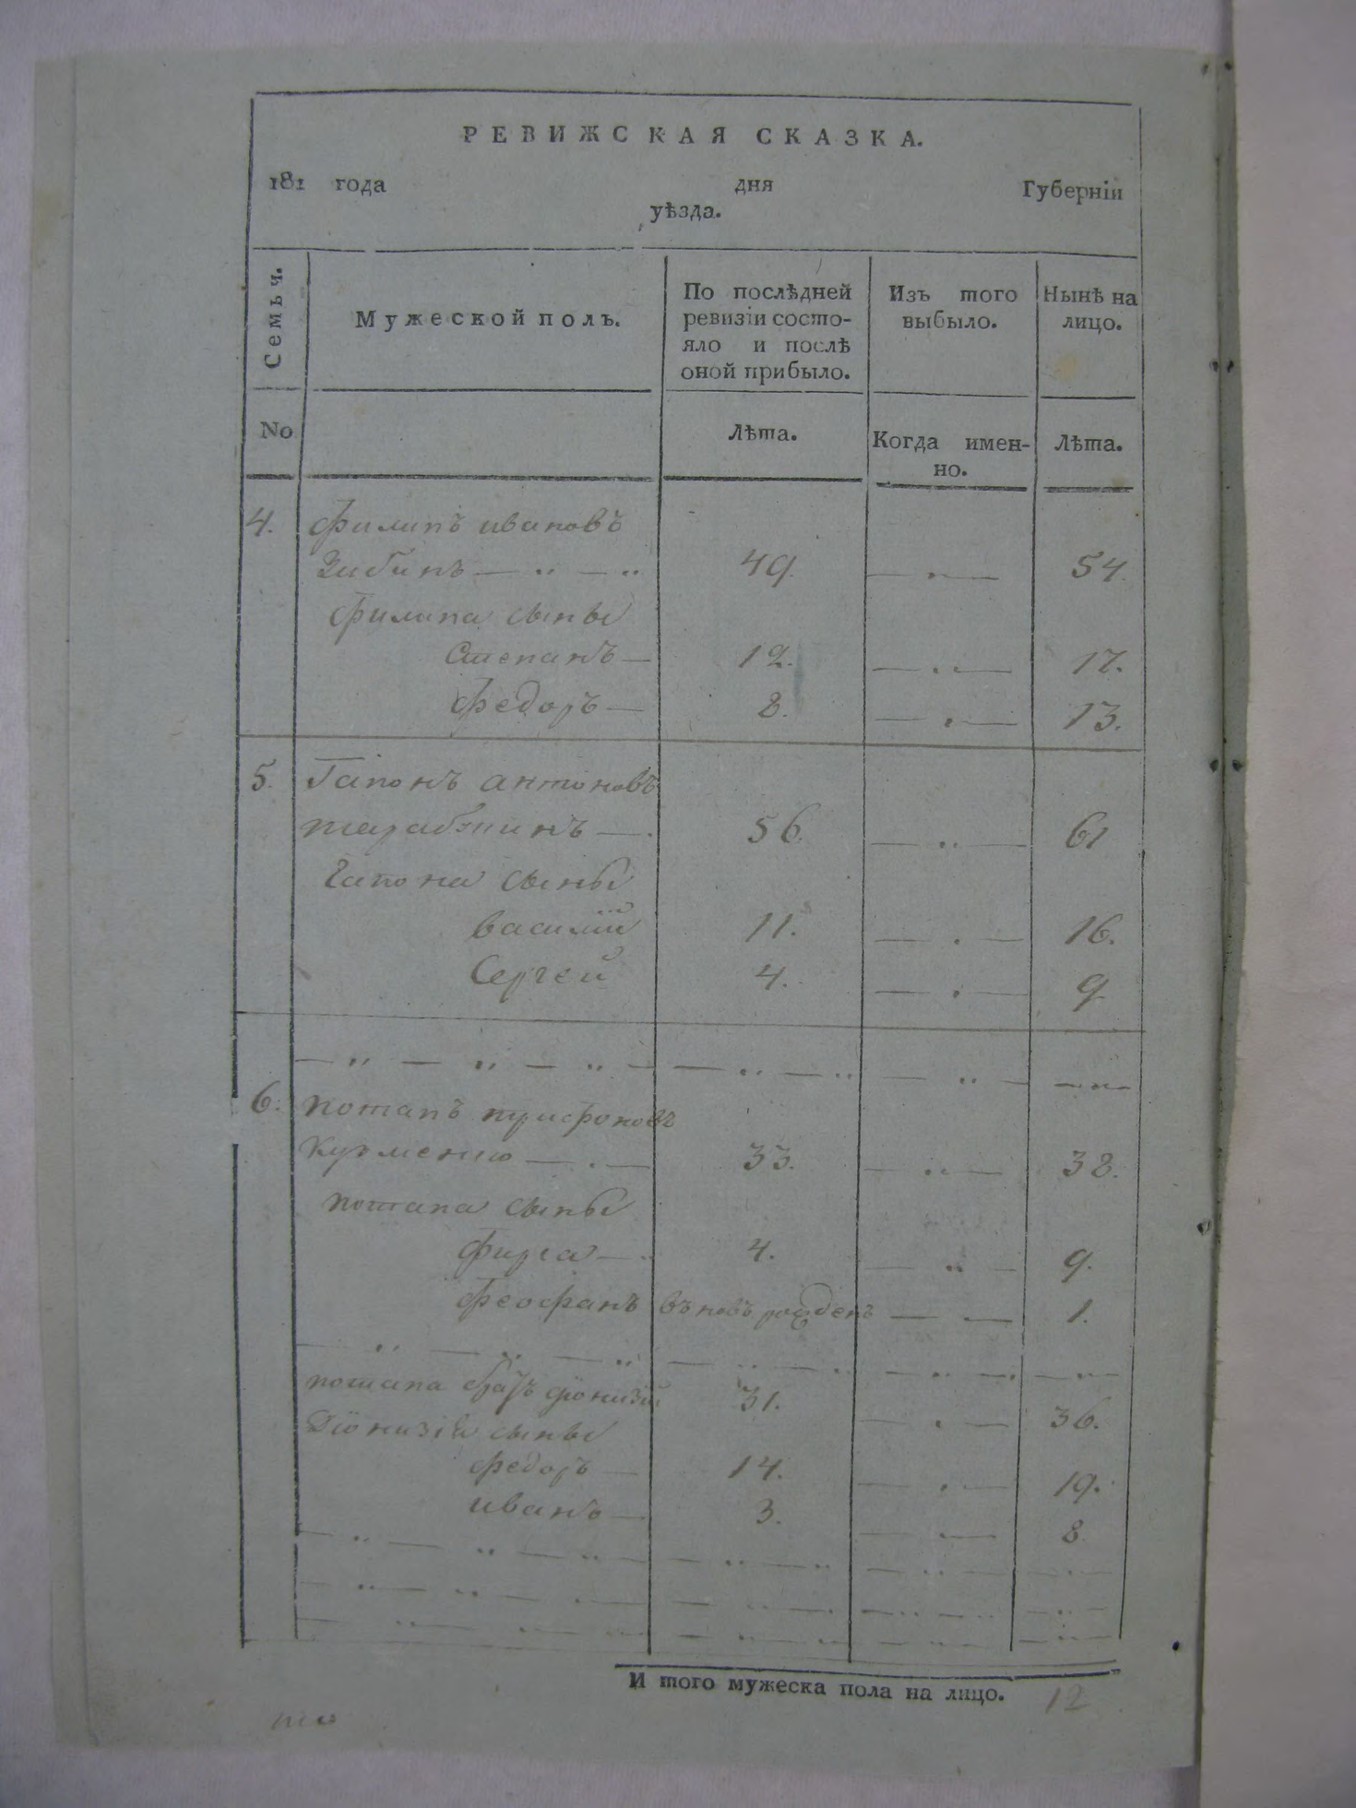 РЕВИЖСКАЯ СКАЗКА.
181 года дня Губерніи
уѣзда.
Семьи.
Мужеской полъ.
По послѣдней ревизіи состо-
яло и послѣ
оной прибыло.
Изъ того
выбыло.
Нынѣ на
лицо.
No
Лѣта.
Когда имен-
но.
Лѣта.
4. Филипъ ивановъ
Зибинъ 49. 54.
Филипа сыны
Степанъ 12. 17.
Федоръ 8. 13.
5. Гапонъ антоновъ
56. 61
Гапона сыны
василий 11. 16.
Сергей 4. 9
6. потапъ
33. 38.
потапа сыны
Фирса 4. 9.
Феофанъ въ новъ рожденъ 1.
потапа братъ дионизий 31. 36.
Діонизія сыны
федоръ 14. 19.
иванъ 3. 8.
И того мужеска пола на лицо. 12